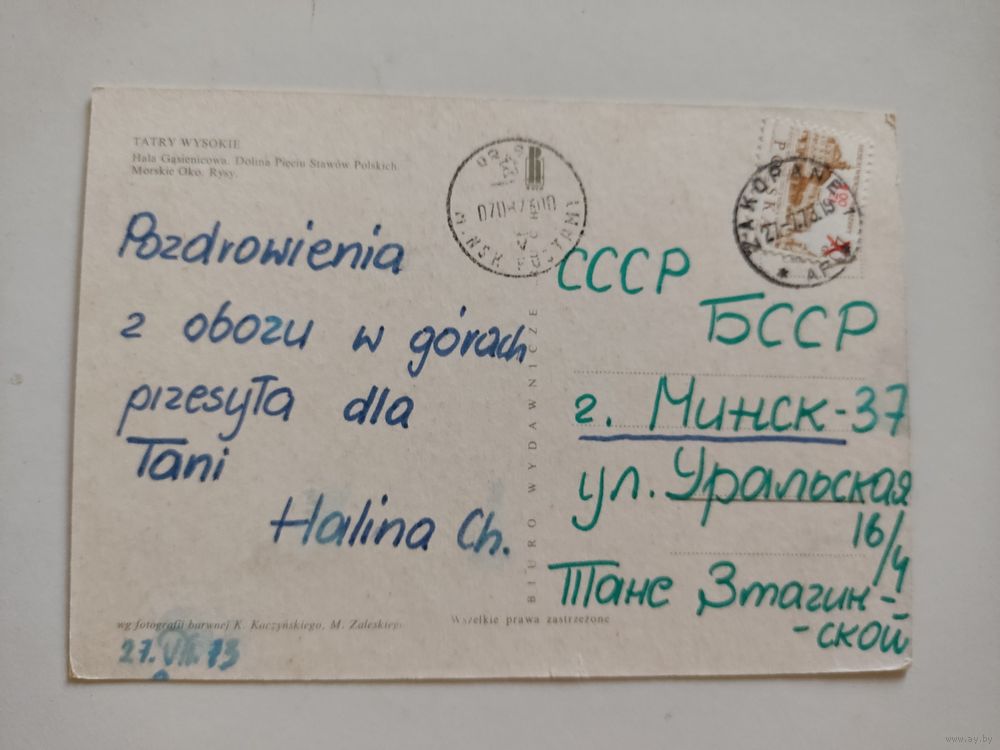 TATRY WYSOKIE
Hala Gąsienicowa. Dolina Pięciu Stawów Polskich.
Morskie Oko. Rysy.
Pozdrowienia
z obozu w górach
przesyła dla
Tani
Halina Ch.
wg fotografii barwnej K. Kaczyńskiego, M. Zaleskiego
27. VII. 73
BIURO WYDAWNICZE
Wszelkie prawa zastrzeżone
ZAKOPANE 1
СССР
БССР
г. Минск-37
ул. Уральская
16/4
Тане Змагин-
-ской
www.ay.by